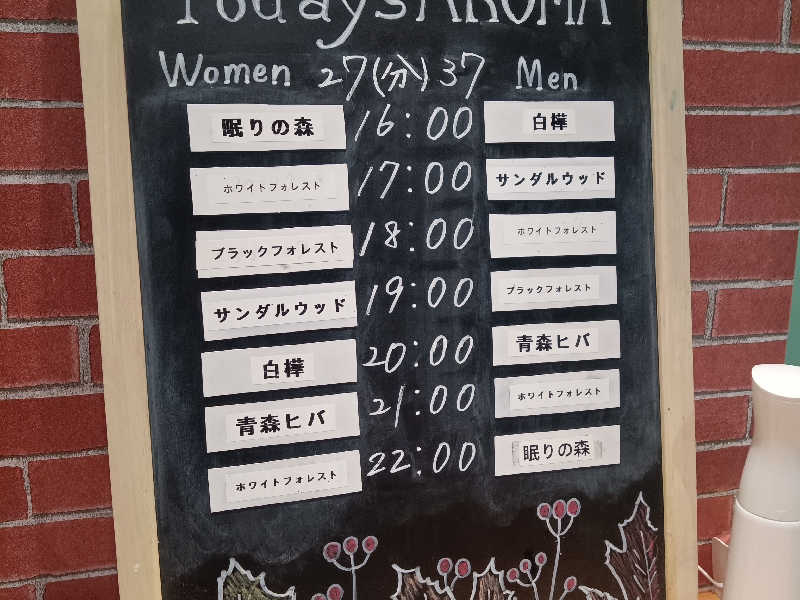 Today's AROMA
Women 27(分)37 Men
眠りの森 16:00 白樺
ホワイトフォレスト 17:00 サンダルウッド
ブラックフォレスト 18:00 ホワイトフォレスト
サンダルウッド 19:00 ブラックフォレスト
白樺 20:00 青森ヒバ
青森ヒバ 21:00 ホワイトフォレスト
ホワイトフォレスト 22:00 眠りの森